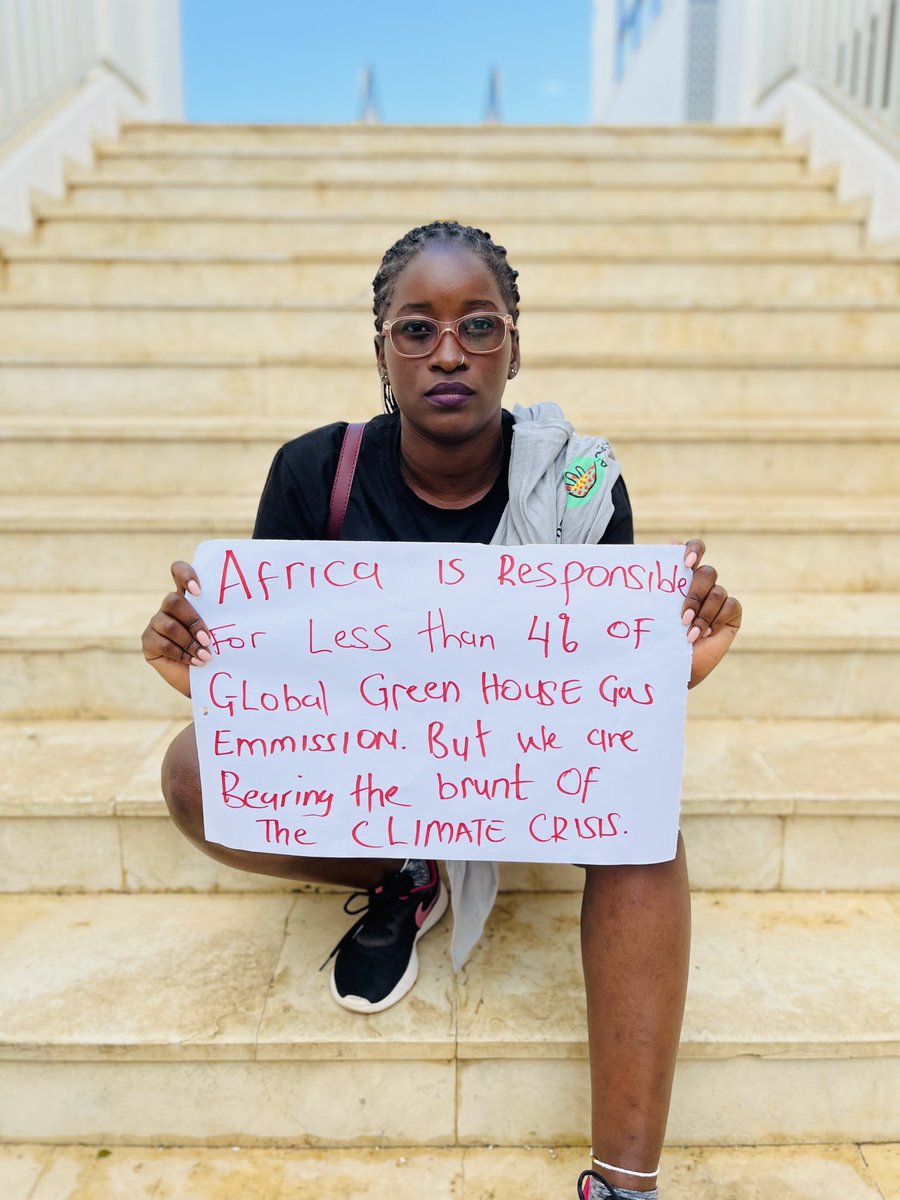 Africa is Responsible
For Less than 4% OF
Global Green House Gas
Emmission. But we are
Bearing the brunt OF
The CLIMATE CRISIS.